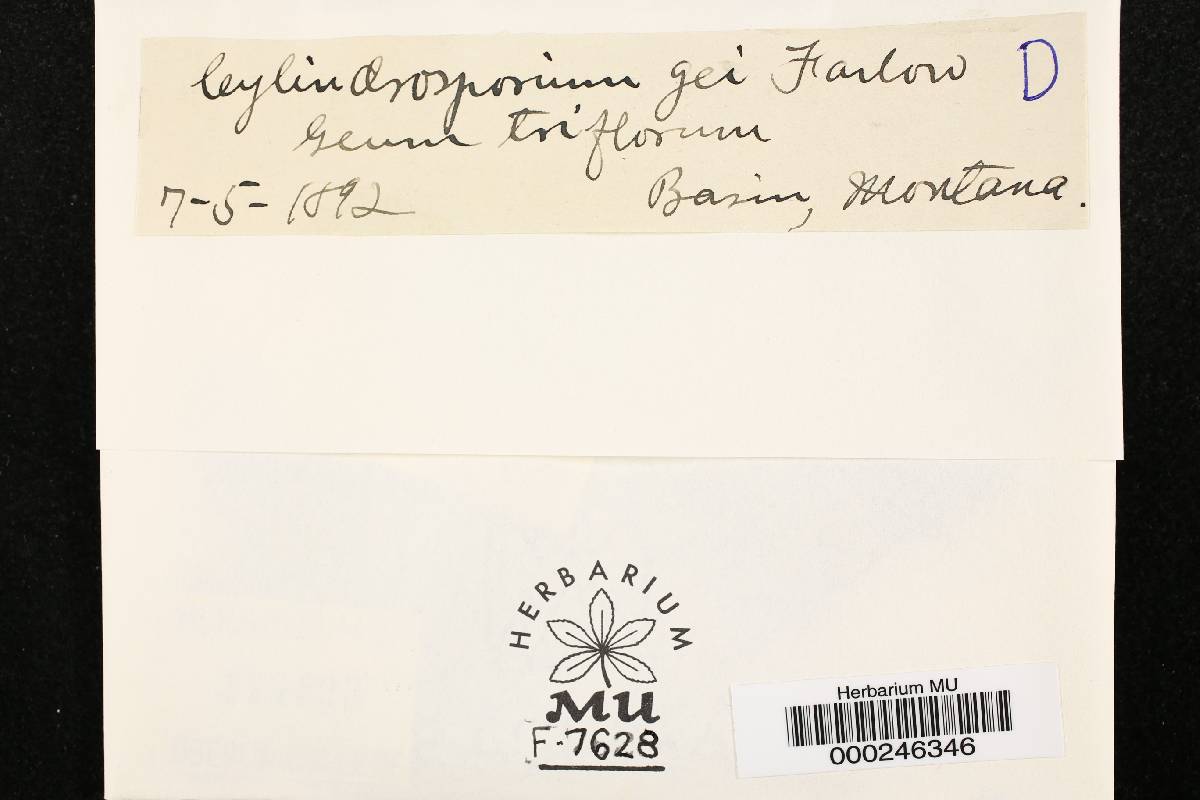 Cylindrosporium gei Farlow D
Geum triflorum
7-5-1892 Basin, Montana.
HERBARIUM
MU
F-7628
Herbarium MU
000246346